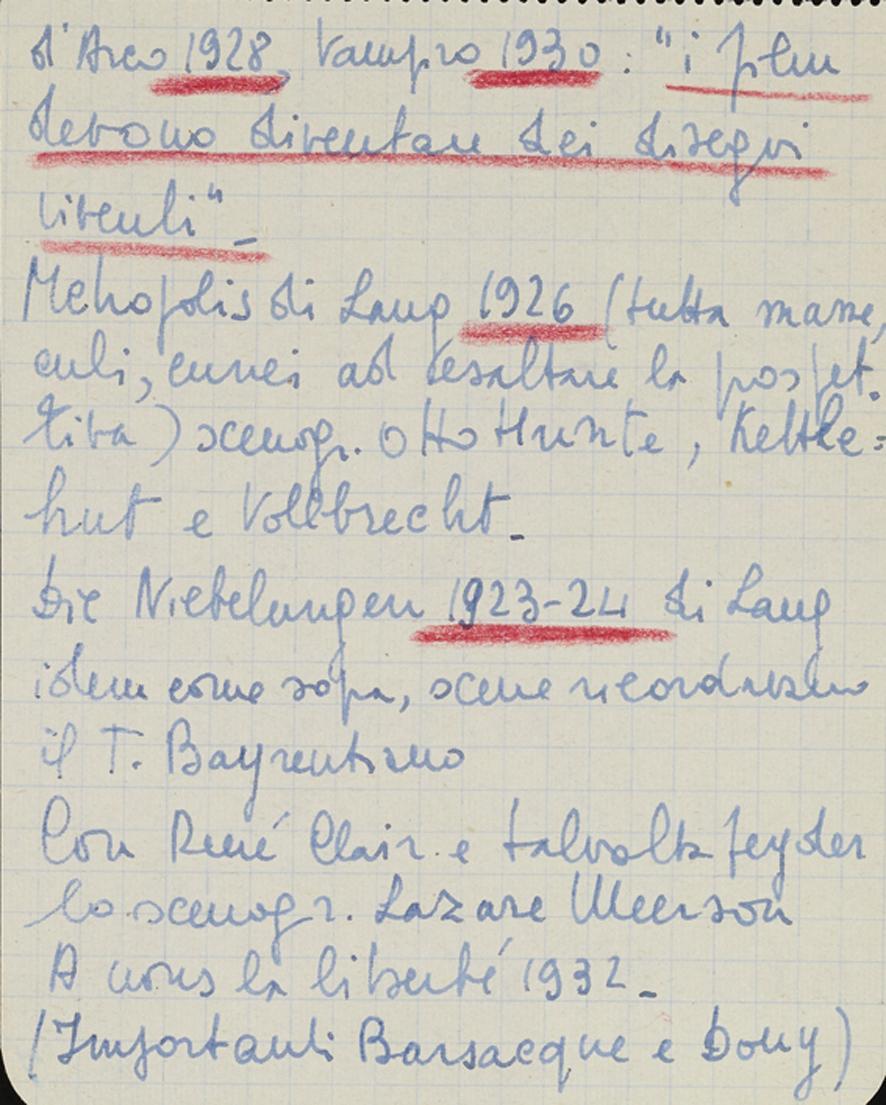 d'Arco 1928, Vampro 1930: "i film
devono diventare dei disegni
viventi"_
Metropolis di Lang 1926 (tutta masse,
cubi, cunei ad esaltare la prospet.
tiva) scenogr. Otto Hunte, Kettle=
hut e Vollbrecht_
Die Niebelungen 1923-24 di Lang
idem come sopra, scene ricordavano
il T. Bayreutiano
Con René Clair e talvolta Feyder
lo scenogr. Lazare Meerson
A nous la liberté 1932_
(Importanti Barsacque e Douy)